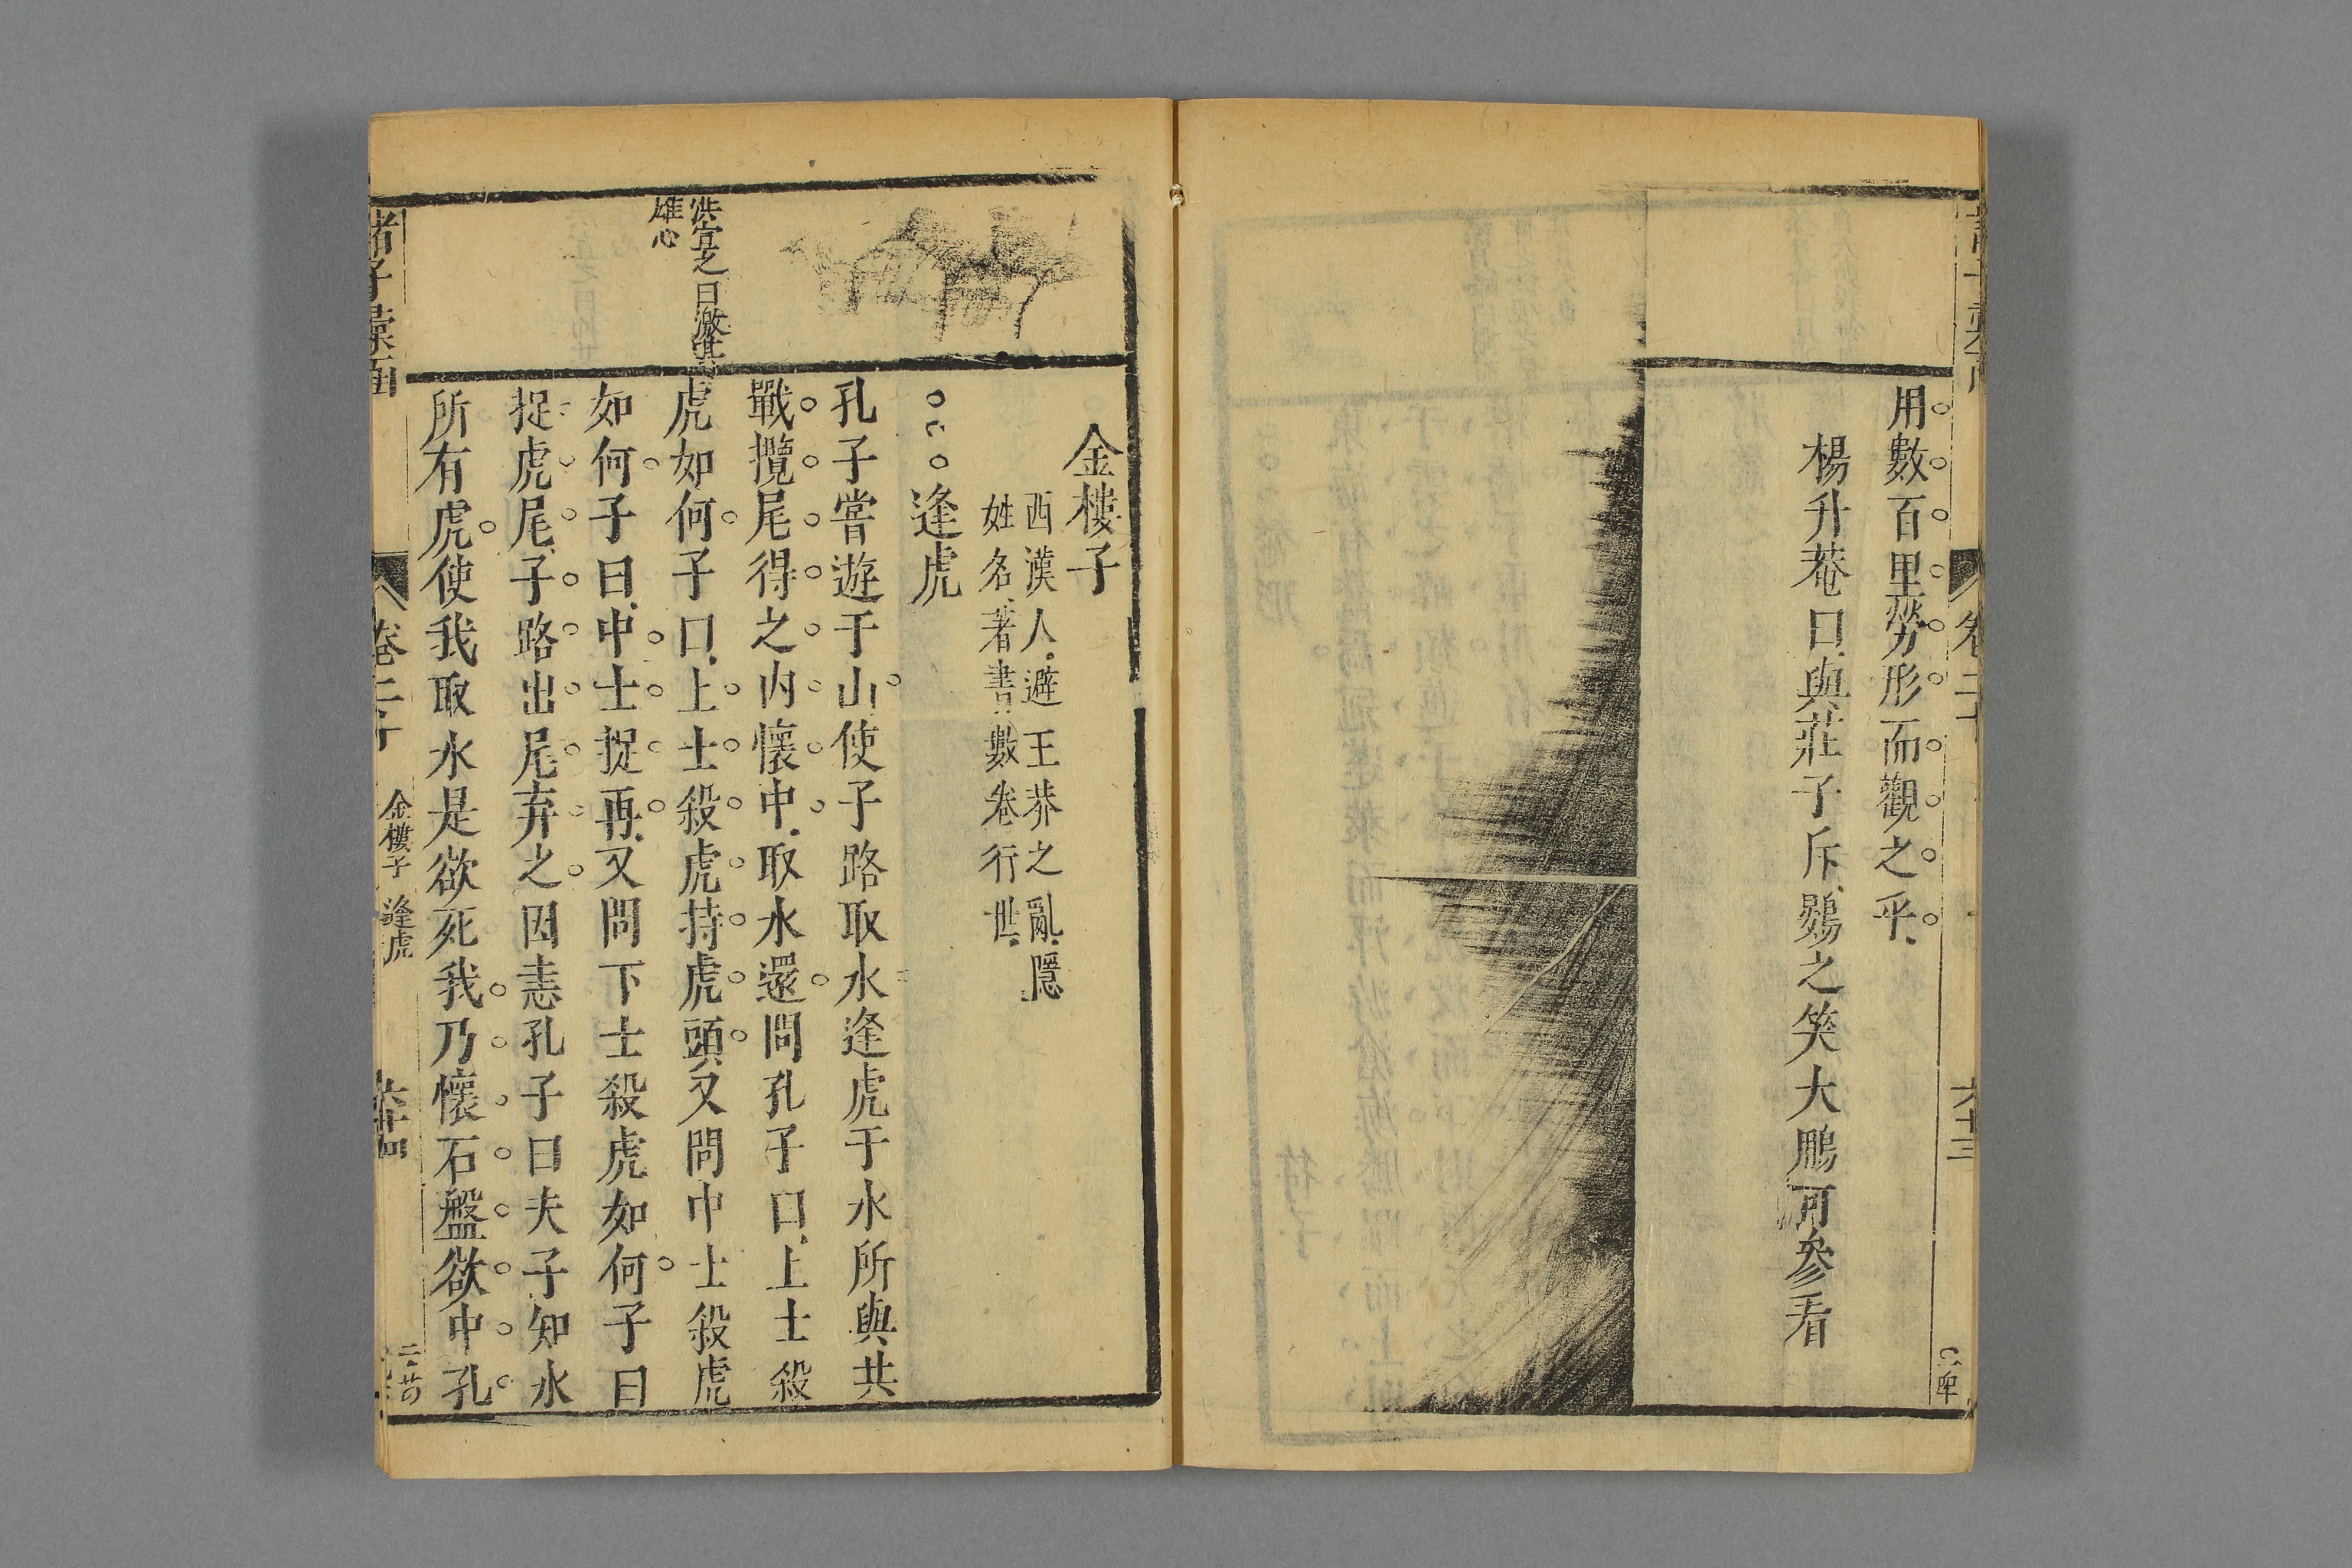 用數百里勞形而觀之乎
楊升菴曰與莊子斥鷃之笑大鵬可參看
卷二十
六十三
金樓子
西漢人避王莽之亂隱
姓名著書數卷行世
逢虎
孔子嘗遊于山使子路取水逢虎于水所與共
戰攬尾得之內懷中取水還問孔子曰上士殺
虎如何子曰上士殺虎持虎頭又問中士殺虎
如何子曰中士捉再又問下士殺虎如何子曰
捉虎尾子路出尾弃之因恚孔子曰夫子知水
所有虎使我取水是欲死我乃懷石盤欲中孔
洪宜之曰激其
雄心
諸子彙函
卷二十
金樓子
逢虎
六十四